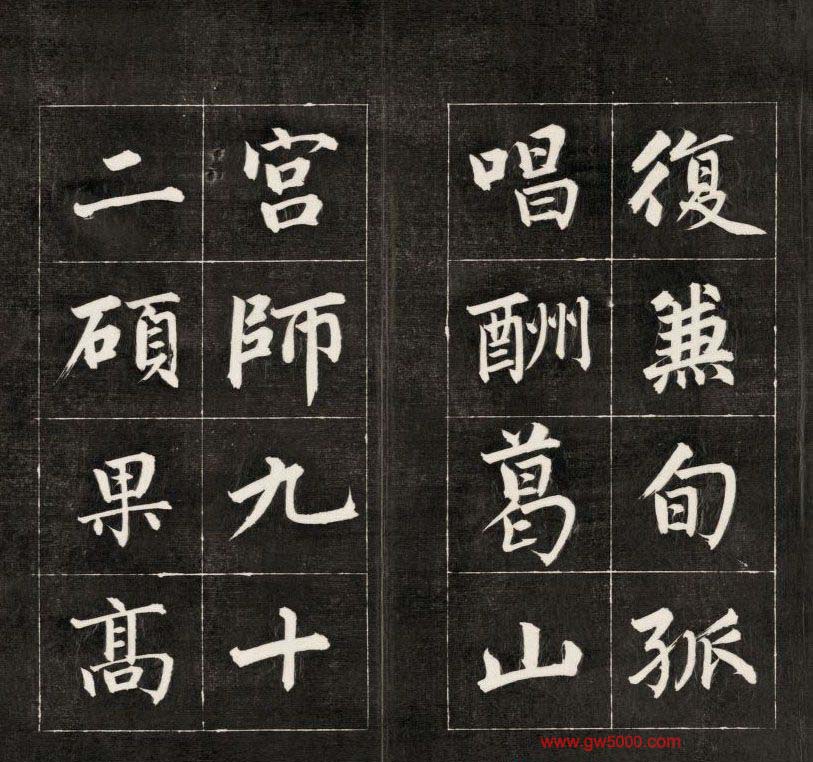 復兼旬孤
唱酬葛山
宫師九十
二碩果高
www.gw5000.com